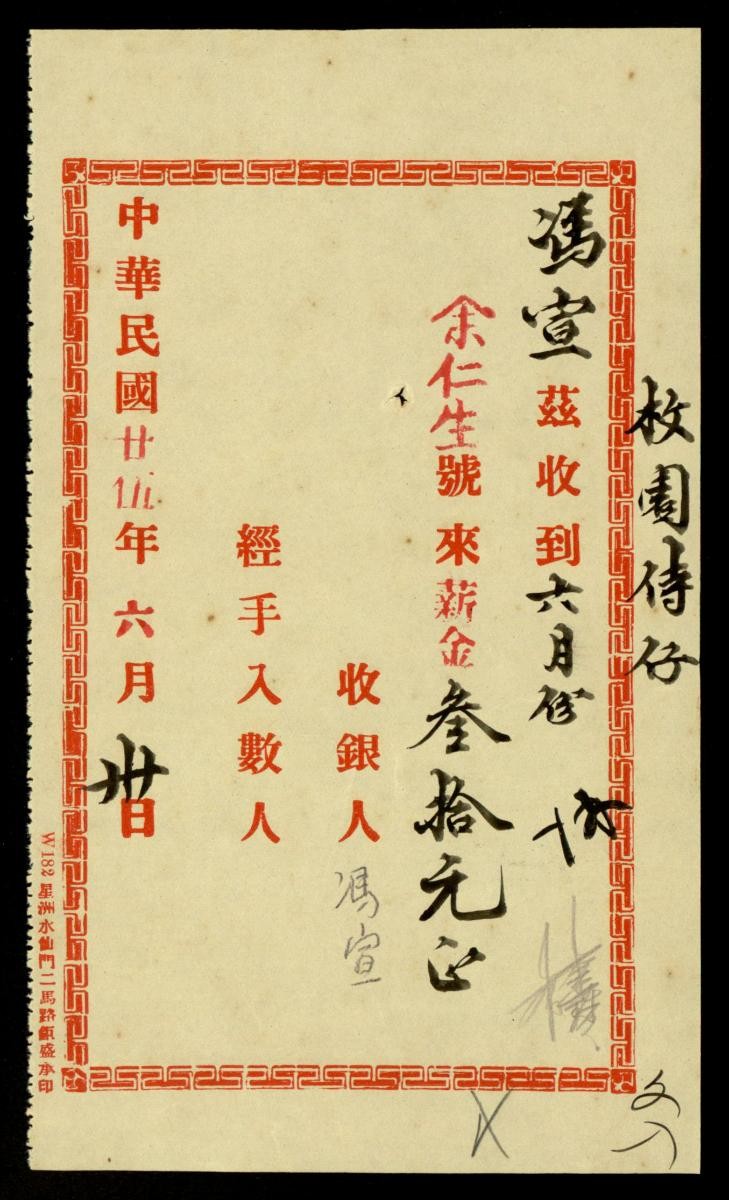 枚園侍仔
馮宣茲收到六月份
余仁生號來薪金叁拾元正
收銀人馮宣
經手入數人
中華民國廿伍年六月卅日
W182 星洲水仙門二馬路鎮盛承印